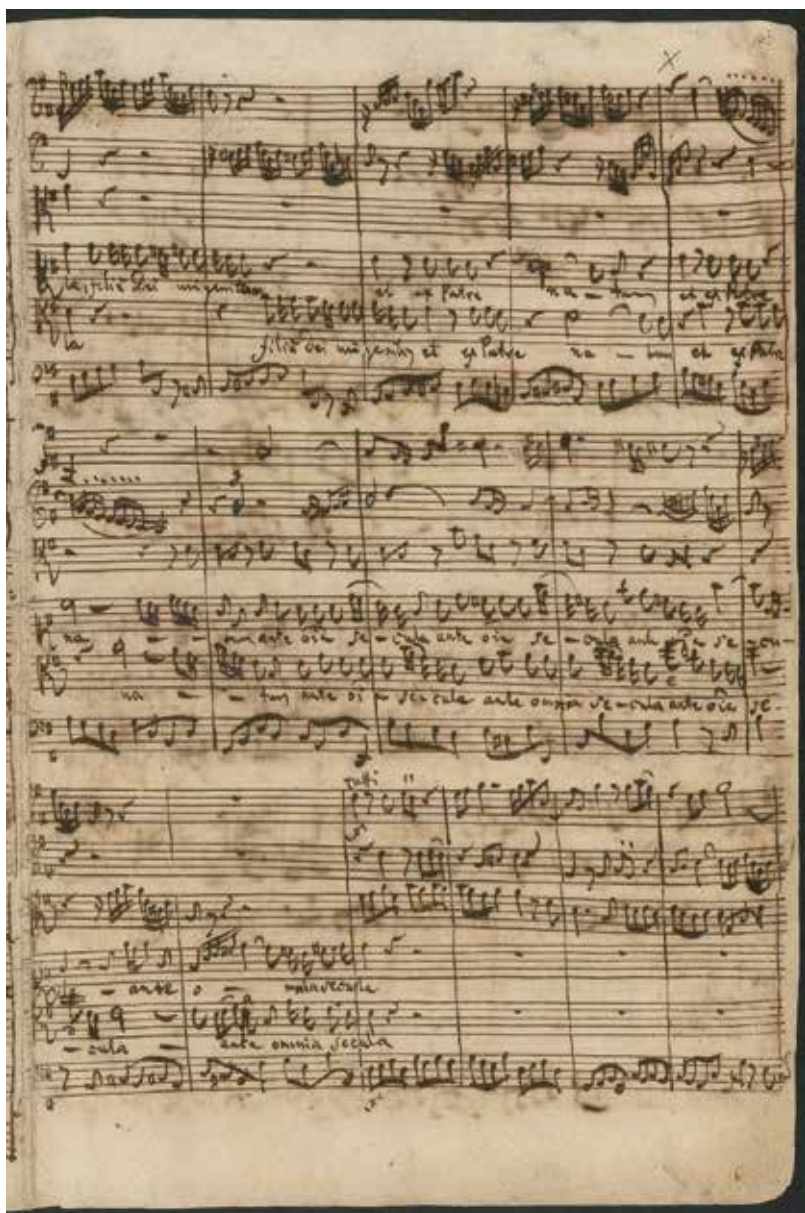 filiū Dei unigenitum et ex Patre na - tum et ex Patre
filiū Dei unigenitū et ex Patre na - tum et ex Patre
na - - tum ante oīa se - cula ante oīa se - cula ante oīa se - cu -
na - - tum ante oī a secula ante omnia se - cula ante oīe se -
tutti
- ante o - mnia secula
- cula - ante omnia secula